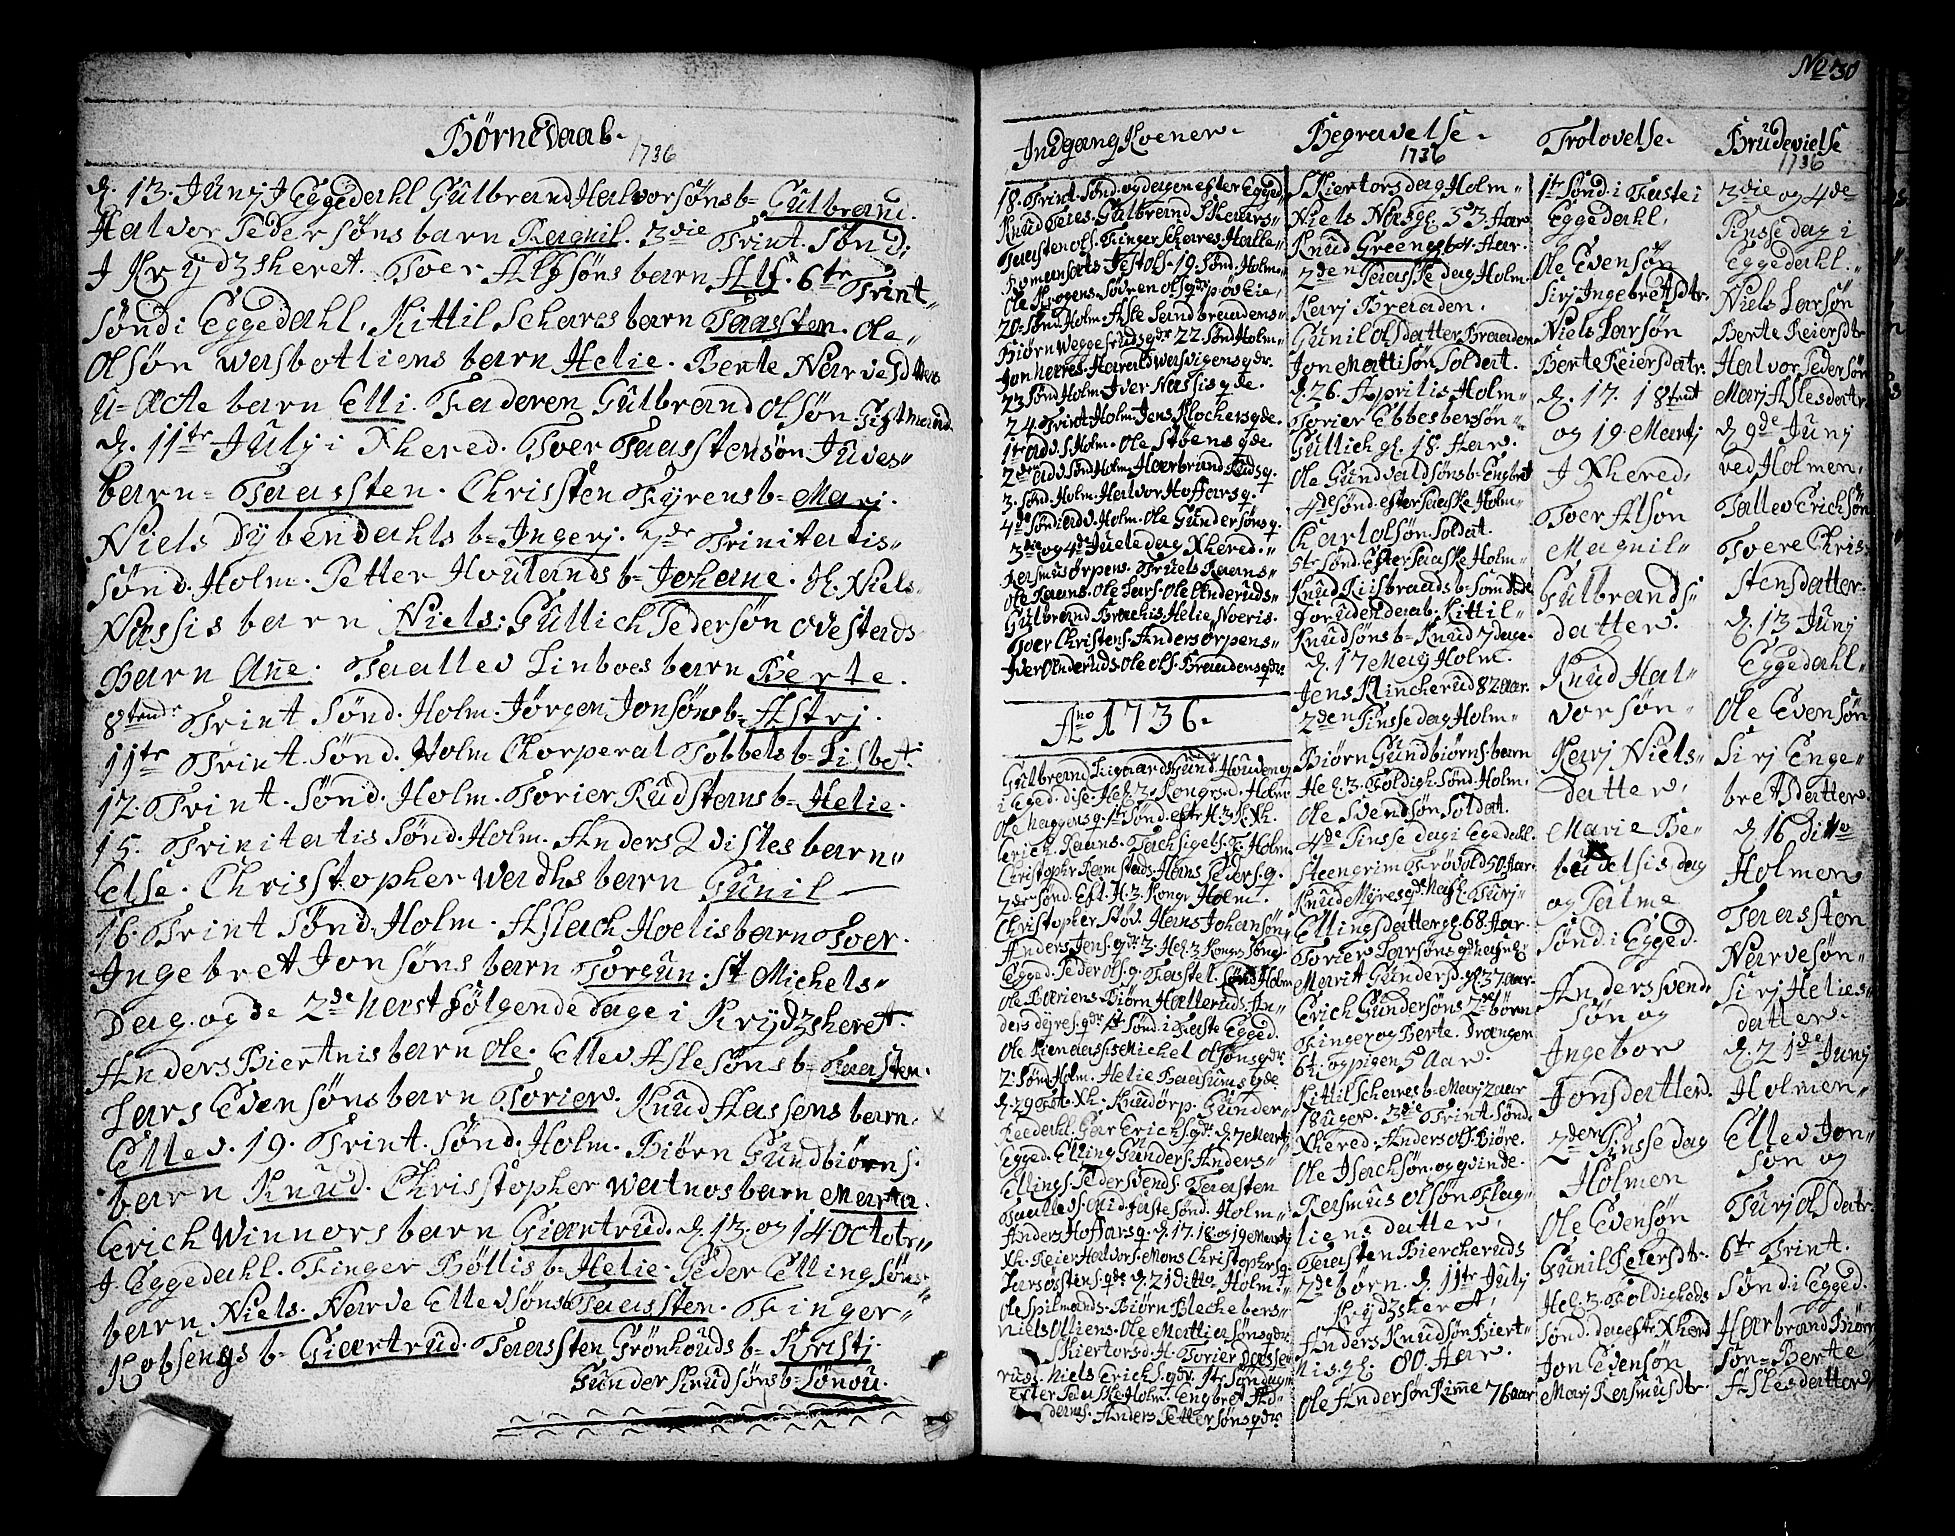 Børnedaab.
1736
d. 13. Junj J Eggedahl Gulbrand Halvorsøns b= Gulbrand.
Halvor Pedersøns barn Ragnil. 3die Trint. Sønd:
J Krydzsheret. Tver Alfsøns barn Alf. 6te Trint=
Sønd i Eggedahl. Kittil Schares barn Taasten. Ole
Olsøn barn Helie. Berte Narvesdatters
u-ægte barn Elli. Faderen Gulbrand Olsøn. Gift Mand
d. 11te Julj i Xhered. Tver Taastensøn Juves=
barn= Taasten. Christen Fyrens b= Marj.
Niels Dybendahls b= Ingerj. 7de Trinitatis=
Sønd. Holm. Petter Hovlands b= Johane. H. Niels
Nassis barn Niels. Gullich Pedersøn Ovestads
Barn Ane. Taallev Linboes barn Berte.
8tende Trint Sønd. Holm. Jørgen Jonsøns b= Astrj.
11te Trint. Sønd. Holm Chorperal Tobbels b= Lisbet.
12. Trint. Sønd. Holm. Torier Rudstans b= Helie.
15. Trinitatis Sønd. Holm. Anders Qvistes barn=
Else. Christopher Wadhs barn Gunil
16. Trint Sønd. Holm. Aslach Hoelis barn Tver.
Ingebret Jonsøns barn Torgun. St Michels=
Dag. og de 2de næst følgende dage i Krydzsheret.
Anders Biertnis barn Ole. Ellev Aslesøns b= Taasten.
Lars Evensøns barn Torier. Knud Aasens barn.
Ellev. 19. Trint. Sønd. Holm. Biørn Gundbiørns.
barn Knud. Christopher Watnos barn Marta.
Erich Winnors barn Giertrud. d. 13. og 14 Octobr=
J. Eggedahl. Finger Bøllis b= Helie. Peder Ellingsøns
barn Niels. Narve Ellevsøns b Taasten. Finger=
Kobsengs b= Giertrud. Taasten Grønhouds b= Kirstj
Gunder Knudsøns b. Sønou.
No 30
Indgang Koener.
18. Trint. Sønd. og dagen efter Egged
Knud Gulbrand Skaars=
Taasten Ols. Finger Schares. Halle=
Jestols. 19. Sønd. Holm=
Ole Krogens. Søvren Ols
20. Sønd. Holm. Aste Sandbraadens=
Biørn Weggesruds gdr. 22. Sønd Holm=
Jon Harald
23 Sønd Holm. Iver Nassis qde.
24 Trint Holm. Jens Klochers qde.
1te adv. S. Holm. Ole Støens qde.
2den adv. Sønd Holm. Haarbrand Ruds q.
3. Sønd. Holm. Halvor Hoffars q.
4de Sønd i adv. Holm. Ole Gundersøns q.
3die og 4de Juele dag Xhered.=
Rasmus Ørpens. Truels Raans=
Ole Raans. Ole Lars. Ole Anderuds=
Gulbrand Braahis. Helie Noeris.
Tver Christens. Anders Ørpens=
Iver Anderuds Ole Ols. Braadens qdr.
Ao 1736.
Gulbrand
i Egged. Hel. 3. Kongrs. d. Holm
Ole Haggens q. 1te Sønd. efter H. 3. K. Xh.
Erich Raans. F. Holm.
Christopher Ramstads. Hans Peders. q.
2den Sønd. Eft. H. 3. Kong. Holm.
Christopher Støv. Hans Johansøns
Anders Jens. qdr. 3. Hel. 3 Kongrs. Sønd
Egged. Peder Ols. q. Fastel. Sønd Holm
Ole Bariens. Biørn Halleruds. An=
ders dyres. qdr. 1te Sønd. i Faste Egged.
Ole Michel Olsøns qdr.
2. Søn Holm. Helie Baasums qde
d. 29 Xh. Knud Ørp. Gunder=
Erichs. qdr. d. 7 Martj
Egged. Elling Gunders. Anders=
Ellings. Peder Svends. Taasten
Taallevs. Mid-faste Sønd. Holm=
Anders Hoffars q. d. 17. 18. og 19 Martj
Xh. Reier Halvors. Mons Christophers q.
Lars qde. d. 21 Ditto Holm=
Ole Spilmands. Biørn Blechebers=
Niels Olliens. Ole Mattiasøns qdr.
Skiertorsd. H. Torier
ruds. Niels Erichs. qdr. 1te Søndag
Efter Paaske Holm. Engbret And=
Anders Pettersøns qdr.
Begravelse.
1736
Skiertorsdag Holm=
Niels Næs gl. 53 Aar
Knud Greens 64. Aar.
2den Paaske dag Holm
Karj Braaden.
Gunil Olsdatter Braaden
Jon Mattisøn Soldat.
d. 26. Aprilis Holm=
Torier Ebbesbersøn=
Gullich gl. 18. Aar.
Ole Gundvaldsøns b= Engbret
4de Sønd. efter Paaske Holm=
Charl Olsøn Soldat.
5te Sønd. Efter Paaske Holm=
Knud Riisbraads b= Som døde
foruden daab. Kittil=
Knudsøns b= Knud 7 dage.
d. 17 Maij Holm.
Jens Klincherud 82 aar.
2den Pinsse dag Holm=
Biørn Gundbiørns. barn
Hel. 3. Foldigh. Sønd. Holm.
Ole Svendsøn Soldat.
4de Pinsse dag i Eggedahl.
Steengrim Trøvold 50 Aar.
Knud Myres Turj=
Ellingsdatter gl. 68 Aar.
Torier Larsøns
Marit Gundersd. gl. 37 aar.
Erich Gundersøns 2de børn
Finger og Berte. Drængen
6½. og pigen 5 Aar.
Kittil Schares b= Marj 2 aar
18 uger. 3die Trint. Sønd.
Xhered. Anders Ols. Biøre.
Ole Isachsøn. og qvinde.
Rasmus Olsøn Flag=
liens datter,
Taasten Biercheruds
2de børn. d. 11te Julj
Krydzsheret,
Anders Knudsøn Biert=
nis gl. 80. Aar.
Ole Andersøn Rime 76 aar
Trolovelse.
1te Sønd. i Faste i
Eggedahl,
Ole Evensøn
Sirj Ingebretsdtr.
Niels Larsøn
Berte Reiersdatr.
d. 17. 18tend
og 19 Martj
J Xhered,
Tver Alsøn
Magnil=
Gulbrands
datter.
Knud Hal=
vorsøn=
Karj Niels=
datter,
Marie Be=
budelsis dag
og Palme
Sønd. i Egged.
Anders Svend
søn og
Ingebor
Jonsdatter.
2den Pinsse dag
Holmen
Ole Evensøn
Gunil Peiersdtr.
Hel. 3. Foldigheds
Sønd. dag efter Xhered
Jon Evensøn
Marj Rasmusdtr.
Brudevielse
1736
3die og 4de
Pinsse dag i
Eggedahl.
Niels Larsøn
Berte Reiersdtr
Halvor Pedersøn
Marj Aslesdattr
d 9de Junj
ved Holmen.
Tallev Erichsøn
Tvere Chri=
stensdatter.
d. 13 Junj
Eggedahl.
Ole Evensøn
Sirj Enge=
bretsdatter.
d. 16 ditto
Holmen
Taasten
Narvesøn=
Sirj Helies=
datter.
d. 21de Junj
Holmen=
Ellev Jon=
søn og
Turj Olsdatr.
6te Trint.
Sønd i Egged.
Harbrand Biørn
søn= Berte
Aslesdatter